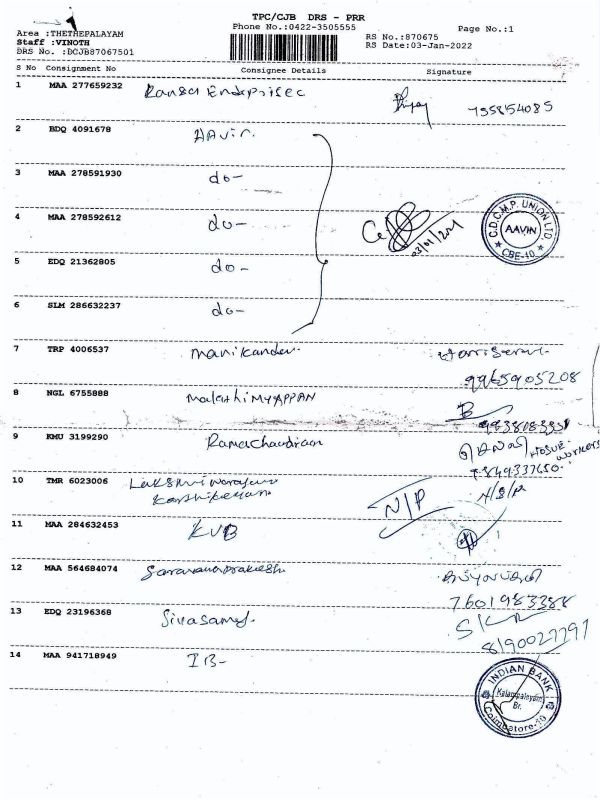 TPC/CJB DRS - PRR
Phone No.:0422-3505555
Page No.:1
Area :THETHEPALAYAM
Staff :VINOTH
DRS No. :DCJB87067501
RS No.:870675
RS Date:03-Jan-2022
S No Consignment No Consignee Details Signature
1 MAA 277659232
2 BDQ 4091678 AAvin.
3 MAA 278591930 do-
4 MAA 278592612 do-
C.D.C.M.P. UNION LTD
AAVIN
CBE-10
5 EDQ 21362805 do-
6 SLM 286632237 do-
7 TRP 4006537 manikanden.
9965905208
8 NGL 6755888 malathi MYAPPAN
9 KMU 3199290 Ramachandran
7849337650
10 TMR 6023006 Lakshmi narayana
Karthikeyan
N/P
11 MAA 284632453 KVB
12 MAA 564684074 Saravanaprakash
7601983388
13 EDQ 23196368 Sivasamy.
8190027297
14 MAA 941718949 IB-
INDIAN BANK
Kalampalayam
Br.
Coimbatore-10